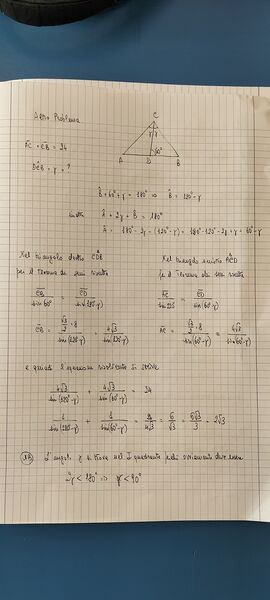 Altro Problema
C
γ γ
60°
A D B
AC + CB = 24
DĈB = γ = ?
B̂ + 60° + γ = 180° ⇒ B̂ = 120° - γ
inoltre Â + 2γ + B̂ = 180°
Â = 180° - 2γ - (120° - γ) = 180° - 120° - 2γ + γ = 60° - γ
Nel triangolo destro CDB
per il Teorema dei seni risulta
CB / sin 60° = CD / sin(120° - γ)
CB = (√3/2 · 8) / sin(120° - γ) = 4√3 / sin(120° - γ)
Nel triangolo sinistro ACD
per il Teorema dei seni risulta
AC / sin 120° = CD / sin(60° - γ)
AC = (√3/2 · 8) / sin(60° - γ) = 4√3 / sin(60° - γ)
e quindi l'equazione risolvente si scrive
4√3 / sin(120° - γ) + 4√3 / sin(60° - γ) = 24
1 / sin(120° - γ) + 1 / sin(60° - γ) = 24 / 4√3 = 6 / √3 = 6√3 / 3 = 2√3
L'angolo γ si trova nel I quadrante perché ovviamente deve essere
2γ < 180° ⇒ γ < 90°